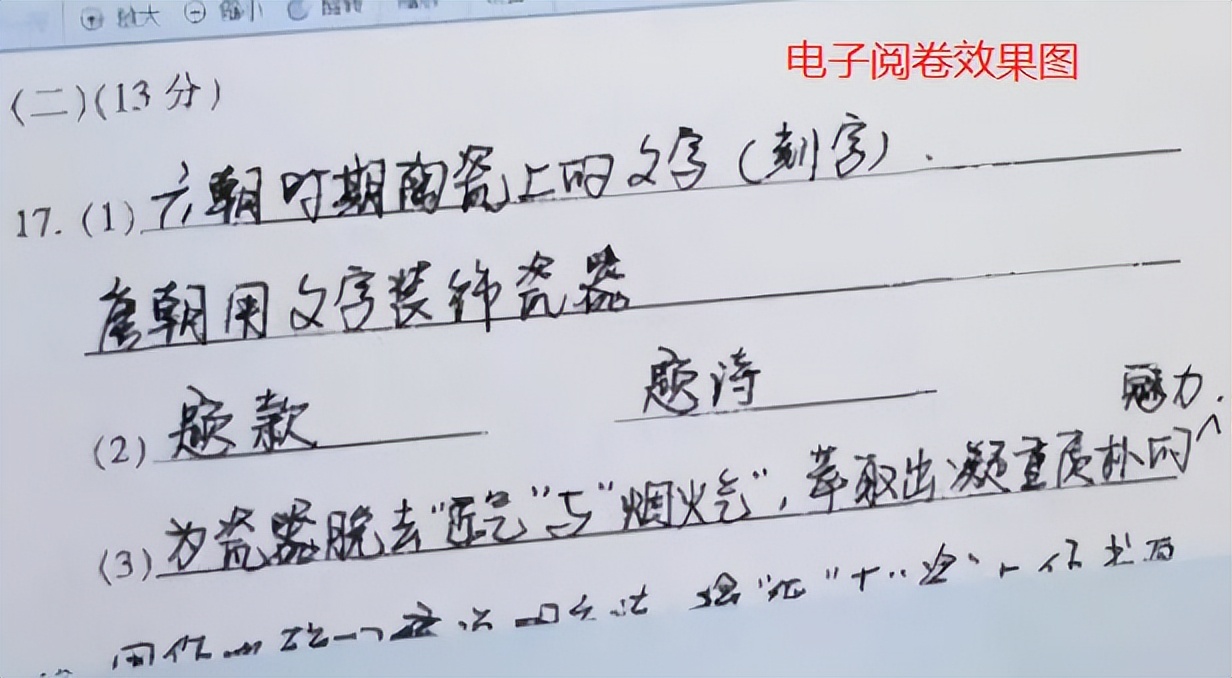 放大 缩小 旋转
电子阅卷效果图
(二)(13分)
17.(1)六朝时期陶瓷上的文字(刻字).
唐朝用文字装饰瓷器
(2)题款 题诗
魅力.
(3)为瓷器脱去“匠气”与“烟火气”,萃取出凝重质朴的^